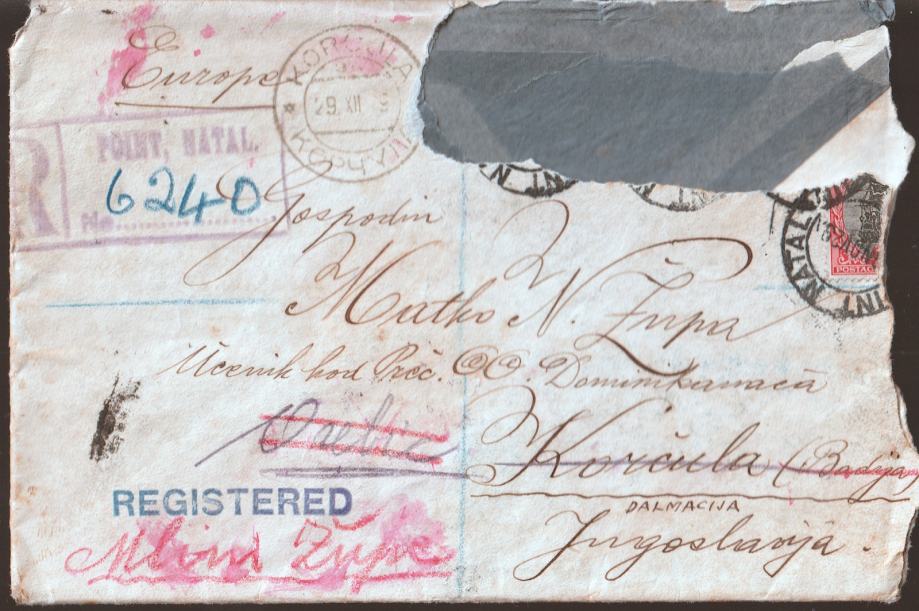 Europe
KORČULA
29. XII
КОРЧУЛА
R
POINT, NATAL.
No 6240
Gospodin
NATAL
POSTAG
Matko N. Župa
Učenik kod Preč. OO. Dominikanaca
Orebić
Korčula (Badija)
REGISTERED
DALMACIJA
Mlini Župa
Jugoslavija.